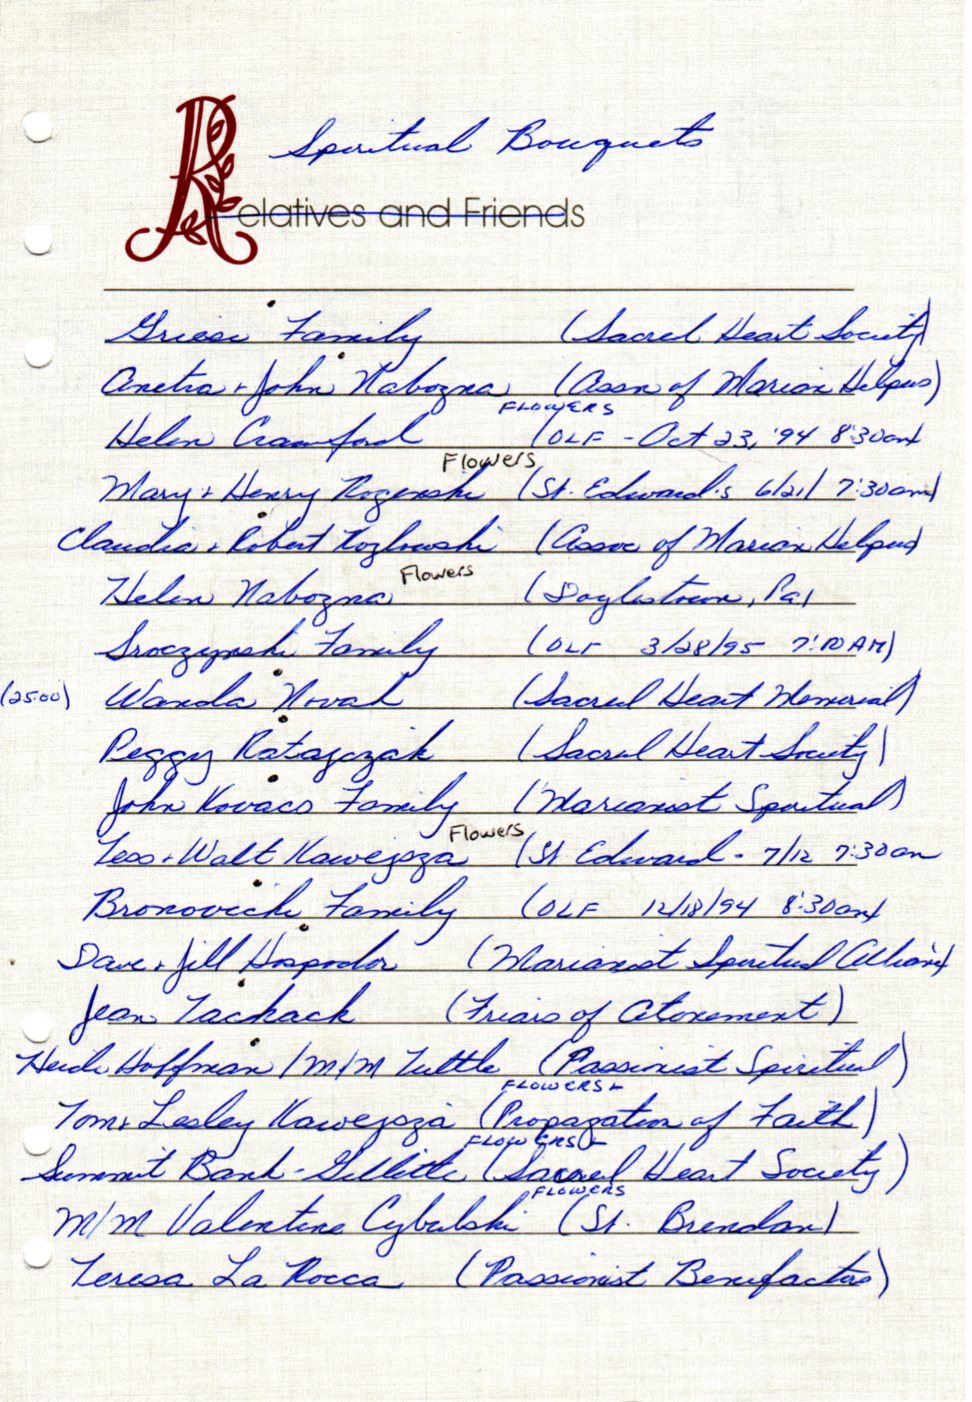 Spiritual Bouquets
Relatives and Friends
Griesi Family (Sacred Heart Society)
Anetra + John Nabozna (Assn of Marian Helpers)
FLOWERS
Helen Crawford (OLF - Oct 23, '94 8:30am)
Flowers
Mary + Henry Rogenski (St. Edward's 6/21/ 7:30am)
Claudia + Robert Kozlowski (Assoc of Marian Helpers)
Flowers
Helen Nabozna (Doylestown, Pa)
Sroczynski Family (OLF 3/28/95 7:10 AM)
(25.00) Wanda Novak (Sacred Heart Memorial)
Peggy Ratajczak (Sacred Heart Society)
John Kovacs Family (Marianist Spiritual)
Flowers
Tess + Walt Kawejsza (St Edward - 7/12 7:30am
Bronovich Family (OLF 12/18/94 8:30am)
Dave + Jill Hospodor (Marianist Spiritual Alliance)
Jean Tackack (Friars of Atonement)
Heidi Hoffman / M/M Tuttle (Passionist Spiritual)
FLOWERS +
Tom + Lesley Kawejsza (Propagation of Faith)
FLOWERS +
Summit Bank - Gillette (Sacred Heart Society)
FLOWERS
M/M Valentine Cybulski (St. Brendan)
Teresa La Rocca (Passionist Benefactors)